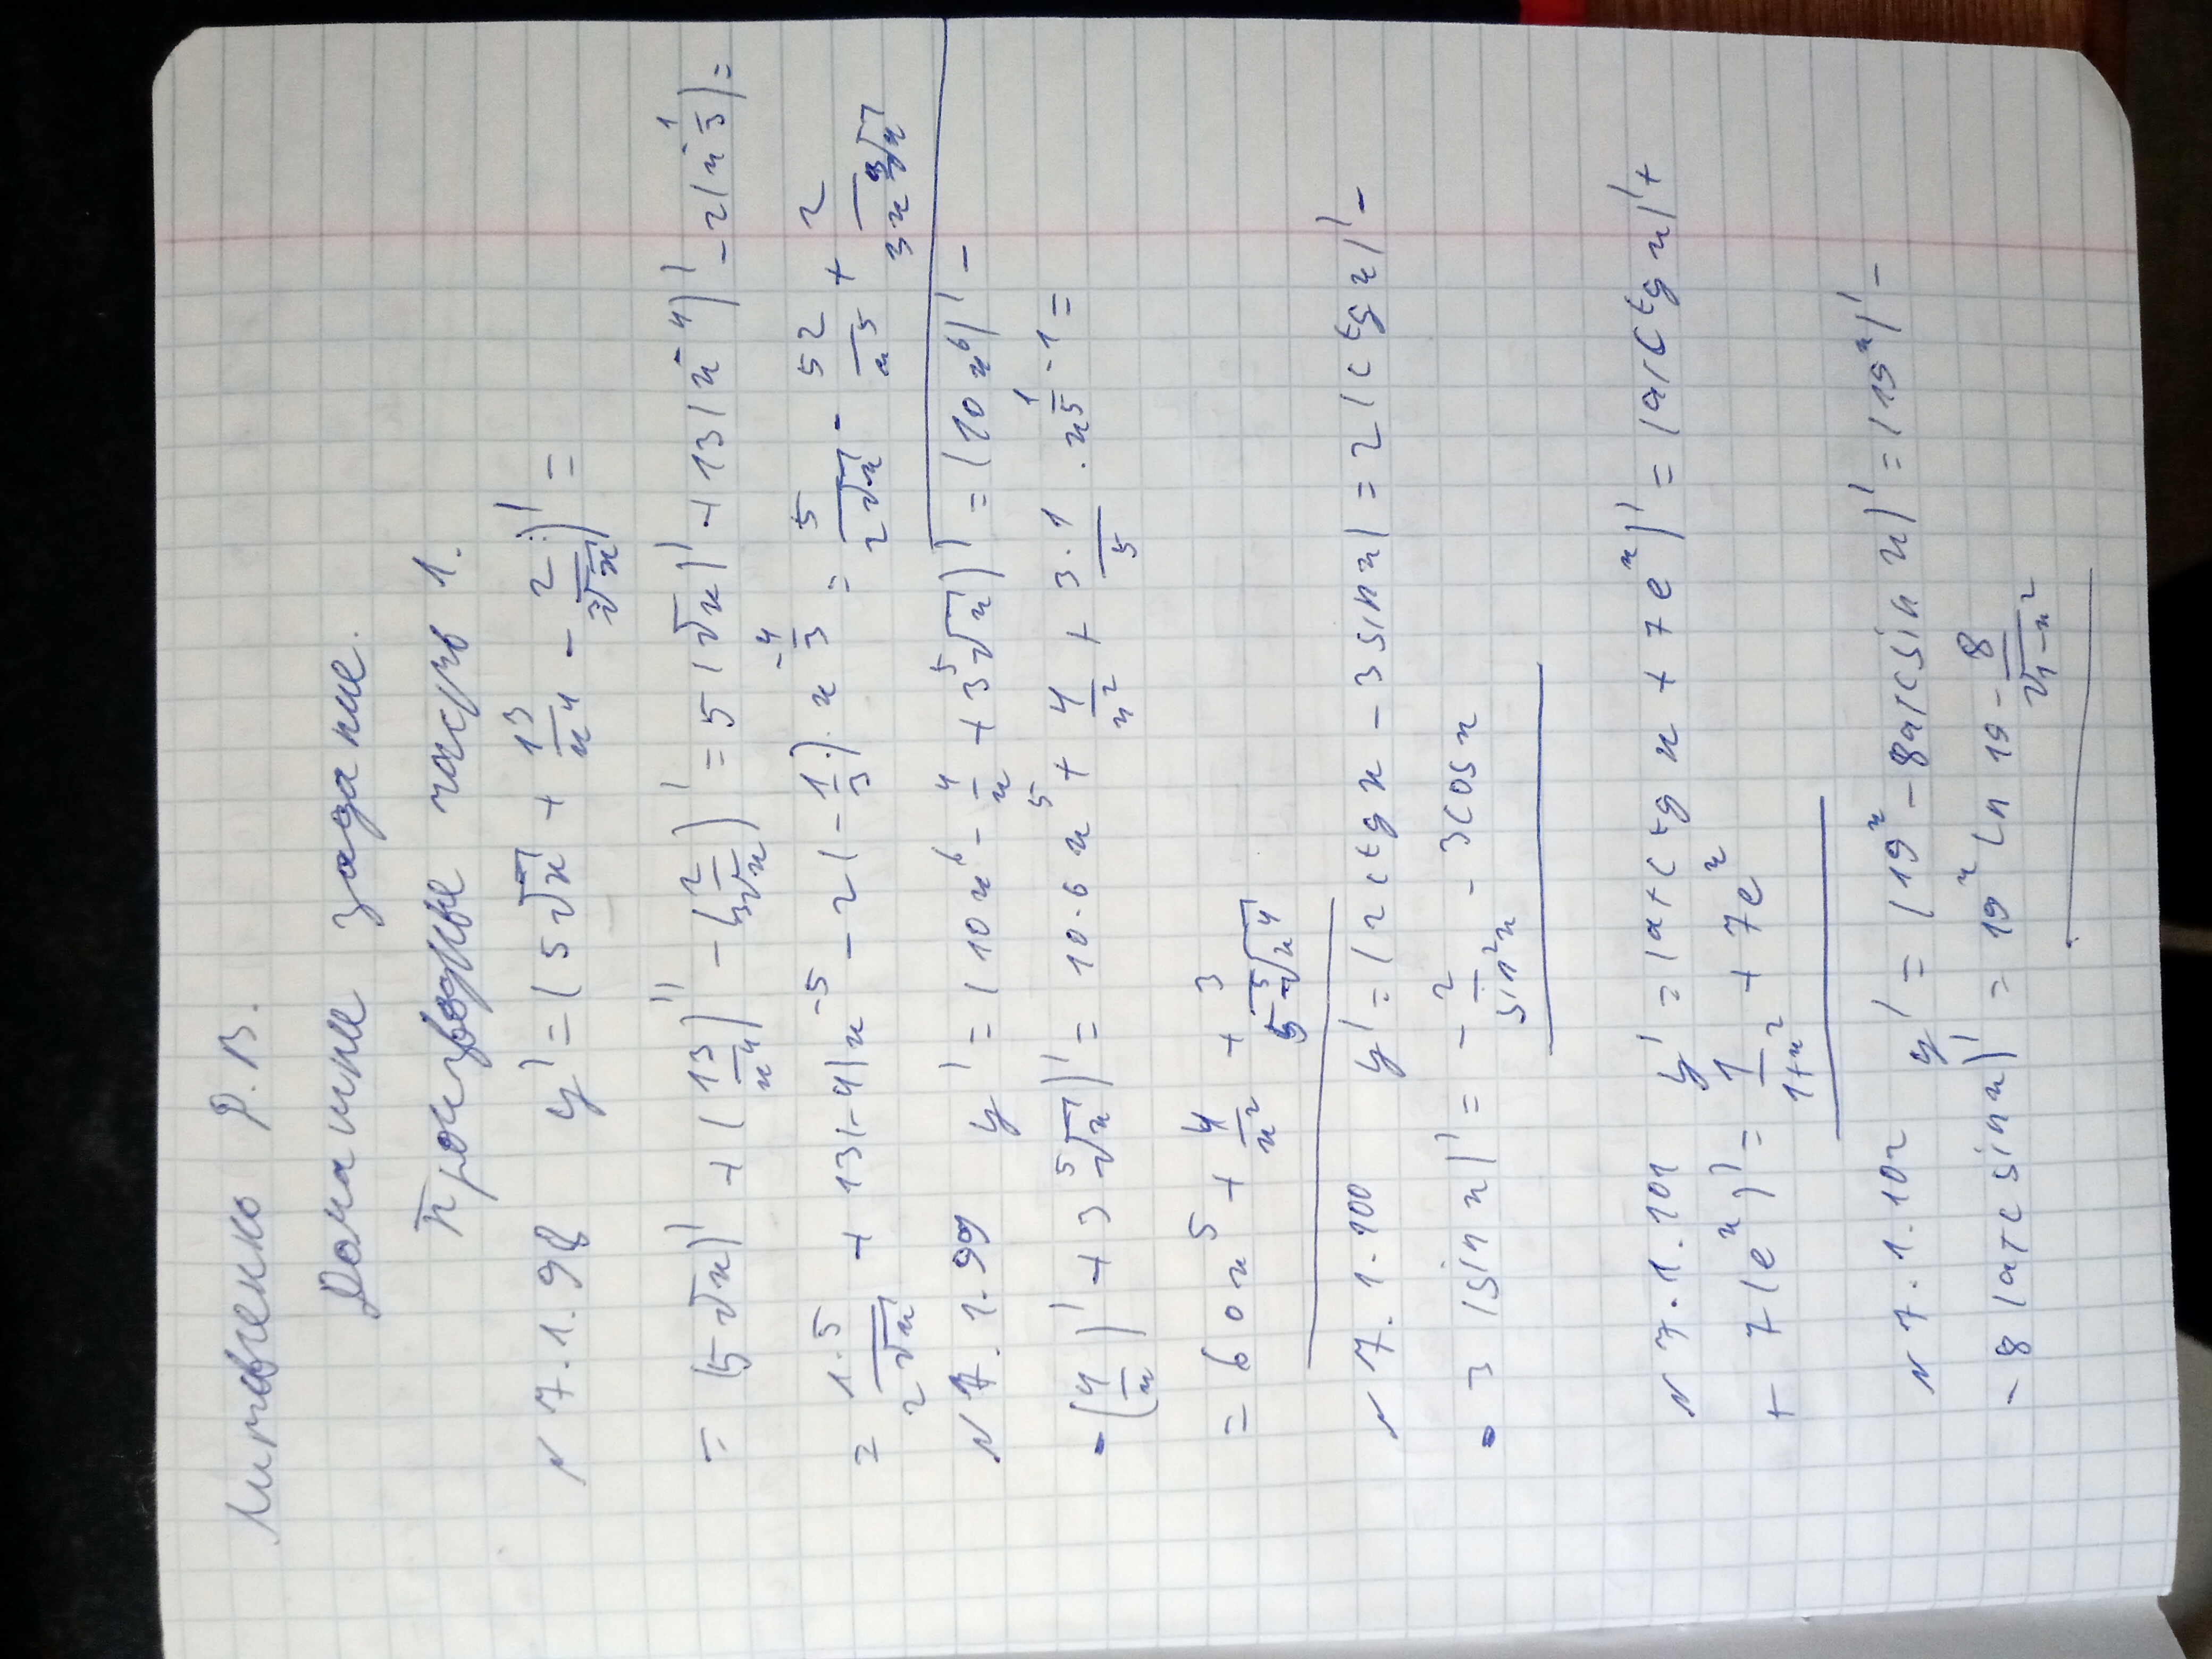 Литовченко Р. В.
Домашнее задание.
Производные часть 1.
№ 7.1.98 y' = (5√x + 13/x⁴ - 2/∛x)' =
= (5√x)' + (13/x⁴)'' - (2/∛x)' = 5(√x)' + 13(x⁻⁴)' - 2(x^(-1/3)) =
= 1·5/(2√x) + 13(-4)x⁻⁵ - 2(-1/3)·x^(-4/3) = 5/(2√x) - 52/x⁵ + 2/(3x∛x)
№ 7.1.99 y' = (10x⁶ - 4/x + 3⁵√x)' = (10x⁶)' -
- (4/x)' + 3 ⁵√x)' = 10·6x⁵ + 4/x² + 3·1/5 · x^(1/5 - 1) =
= 60x⁵ + 4/x² + 3/(5 ⁵√x⁴)
№ 7.1.100 y' = (2ctgx - 3sinx) = 2(ctgx)' -
- 3(sinx)' = - 2/sin²x - 3cosx
№ 7.1.101 y' = (arcctg x + 7eˣ)' = (arcctgx)' +
+ 7(eˣ)' = 1/(1+x²) + 7eˣ
№ 7.1.102 y' = (19ˣ - 8arcsin x)' = (19ˣ)' -
- 8(arcsinx)' = 19ˣ ln 19 - 8/√(1-x²)